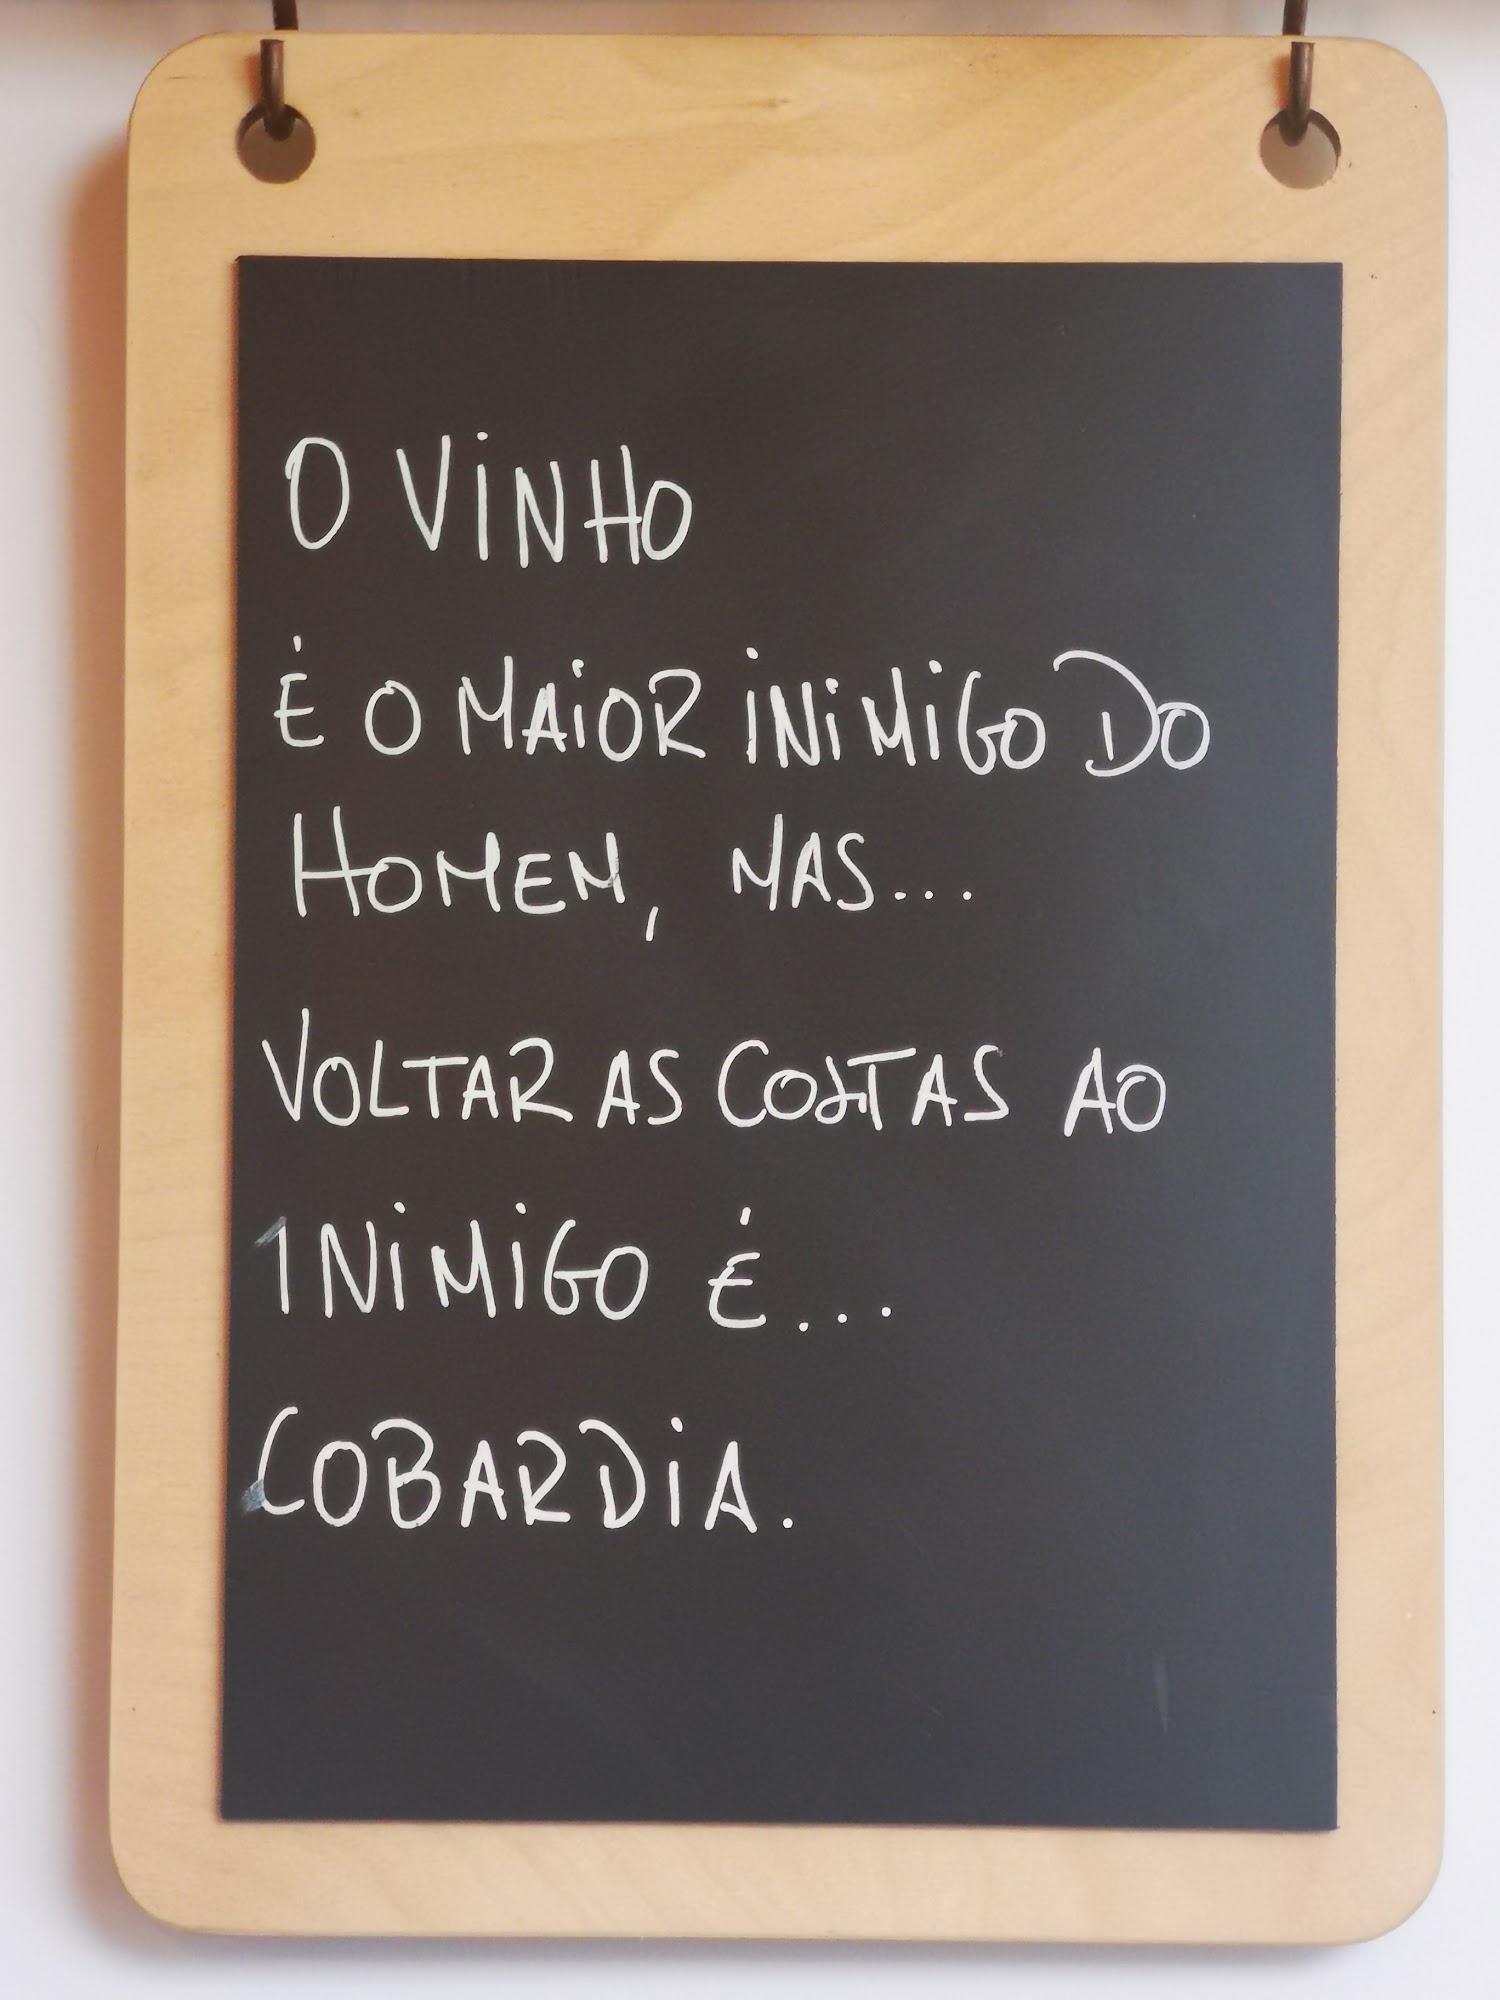 O VINHO
É O MAIOR INIMIGO DO
HOMEM, MAS...
VOLTAR AS COSTAS AO
INIMIGO É...
COBARDIA.